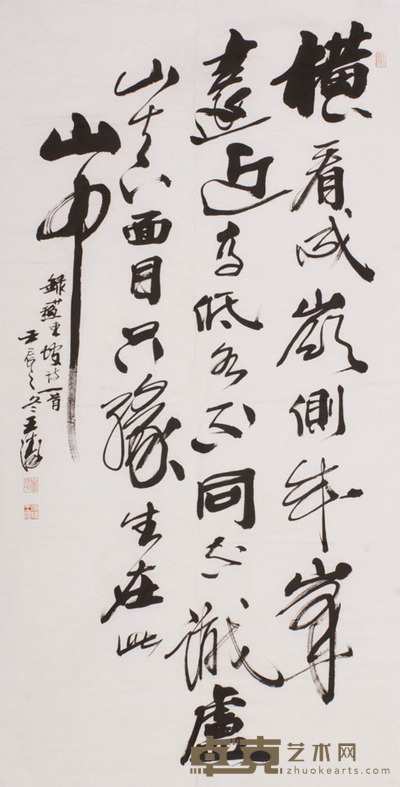 橫看成嶺側成峯
遠近高低各不同不識廬
山真面目只緣生在此
山中
錄蘇東坡詩一首
壬辰之冬王
卓克艺术网
zhuokearts.com